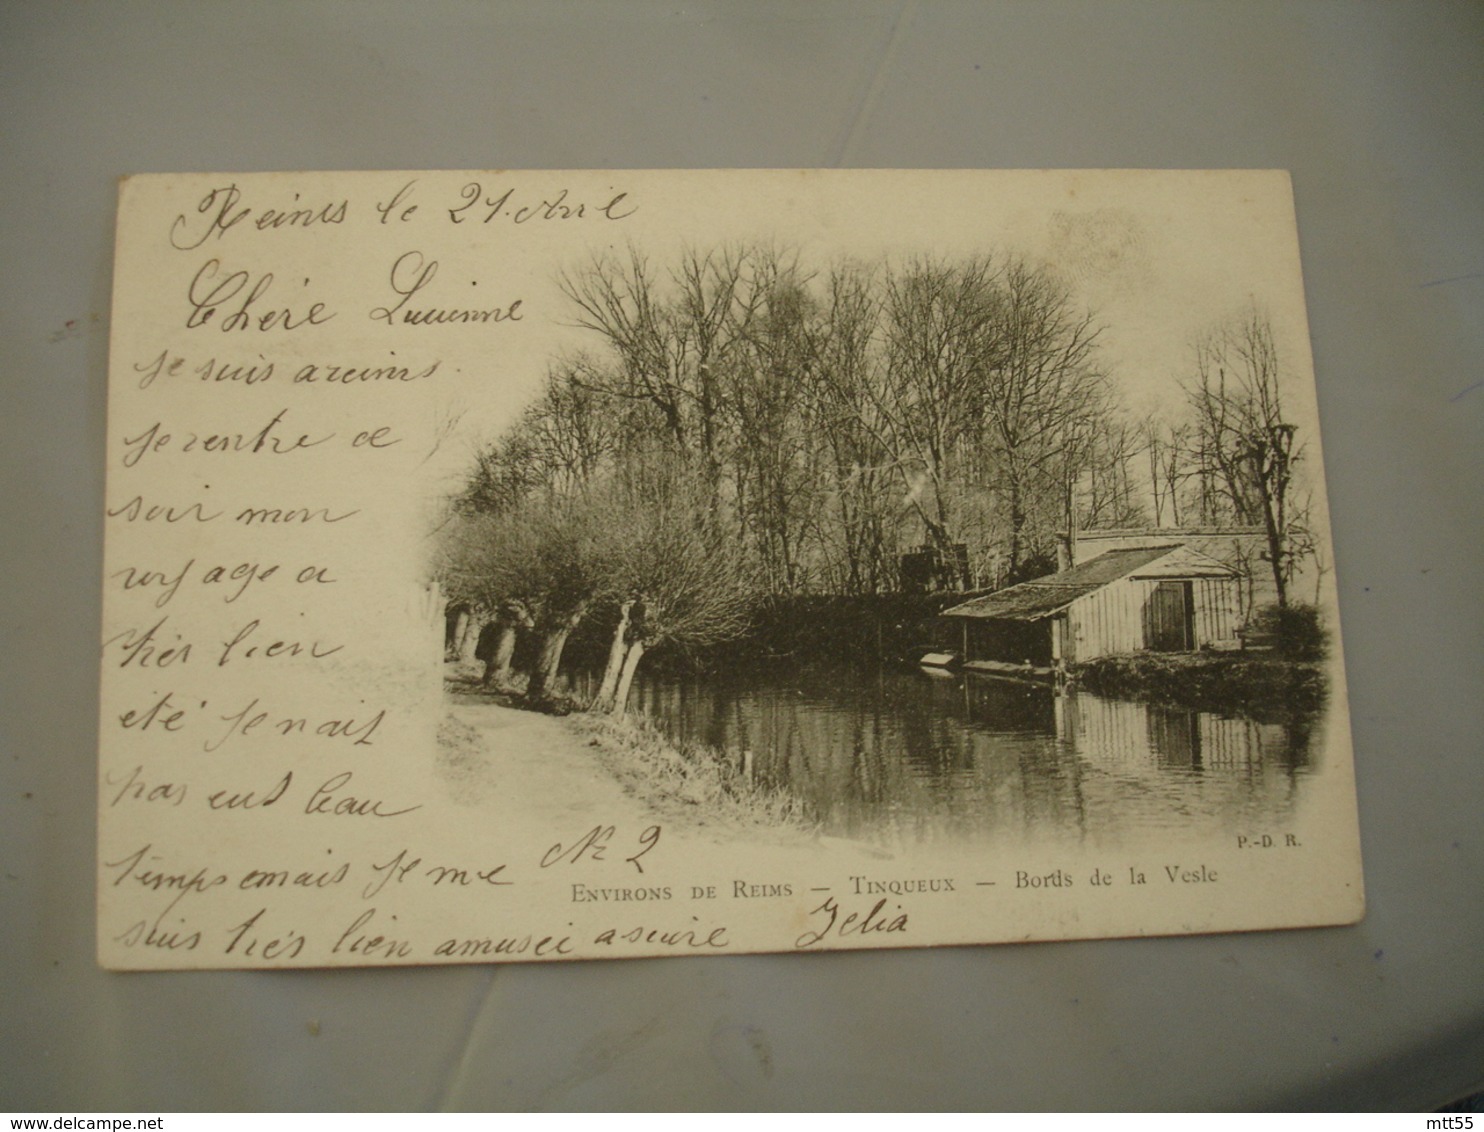 Reims le 21 Avril
Chère Lucienne
je suis a reims.
je rentre ce
soir mon
voyage a
très bien
été je nait
pas eut beau
temps mais je me
N° 2
suis très bien amusée a suivre
Jelia
ENVIRONS DE REIMS — TINQUEUX — Bords de la Vesle
P.-D. R.
delcampe.net
mtt55